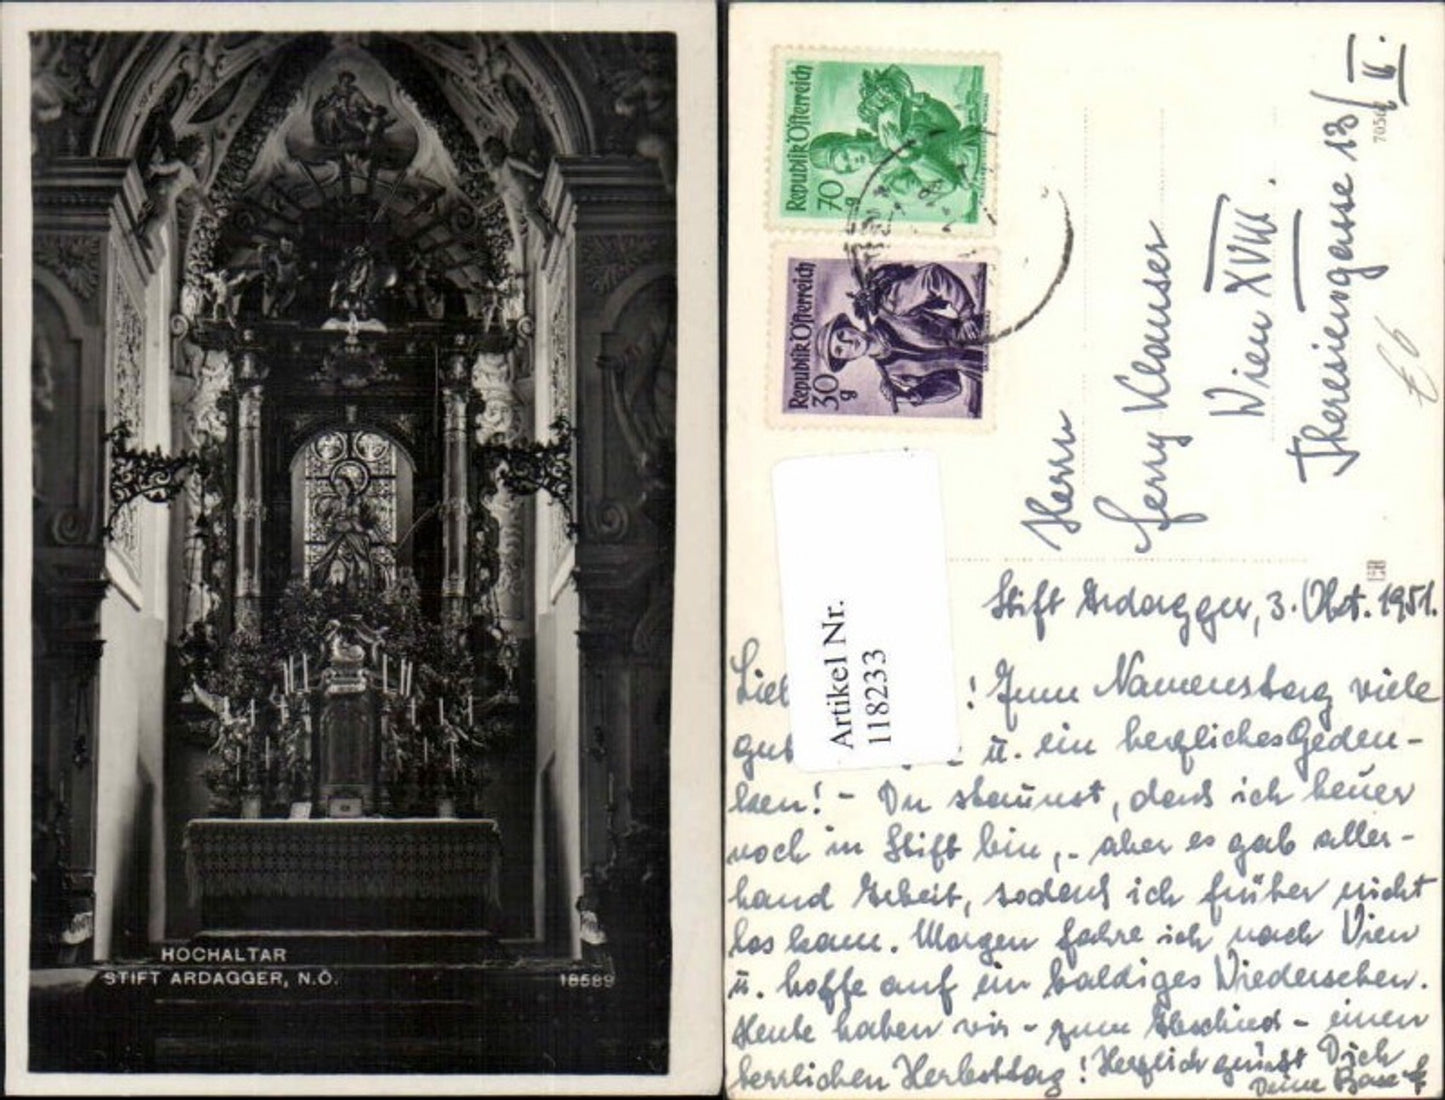 HOCHALTAR
STIFT ARDAGGER, N.Ö.
18589
Republik Österreich
70 g
Republik Österreich
30 g
Herrn
Ferry Klauser
Wien XVIII.
Theresiengasse 13/II.
7056
E6
Artikel Nr.
118233
Stift Ardagger, 3. Okt. 1951.
! Zum Namenstag viele
u. ein herzliches Geden-
ken! - Du staunst, dass ich heuer
noch in Stift bin, - aber es gab aller-
hand Arbeit, sodass ich früher nicht
los kam. Morgen fahre ich nach Wien
u. hoffe auf ein baldiges Wiedersehen.
Heute haben wir - zum Abschied - einen
herrlichen Herbsttag! Herzlich grüsst Dich
Deine Base